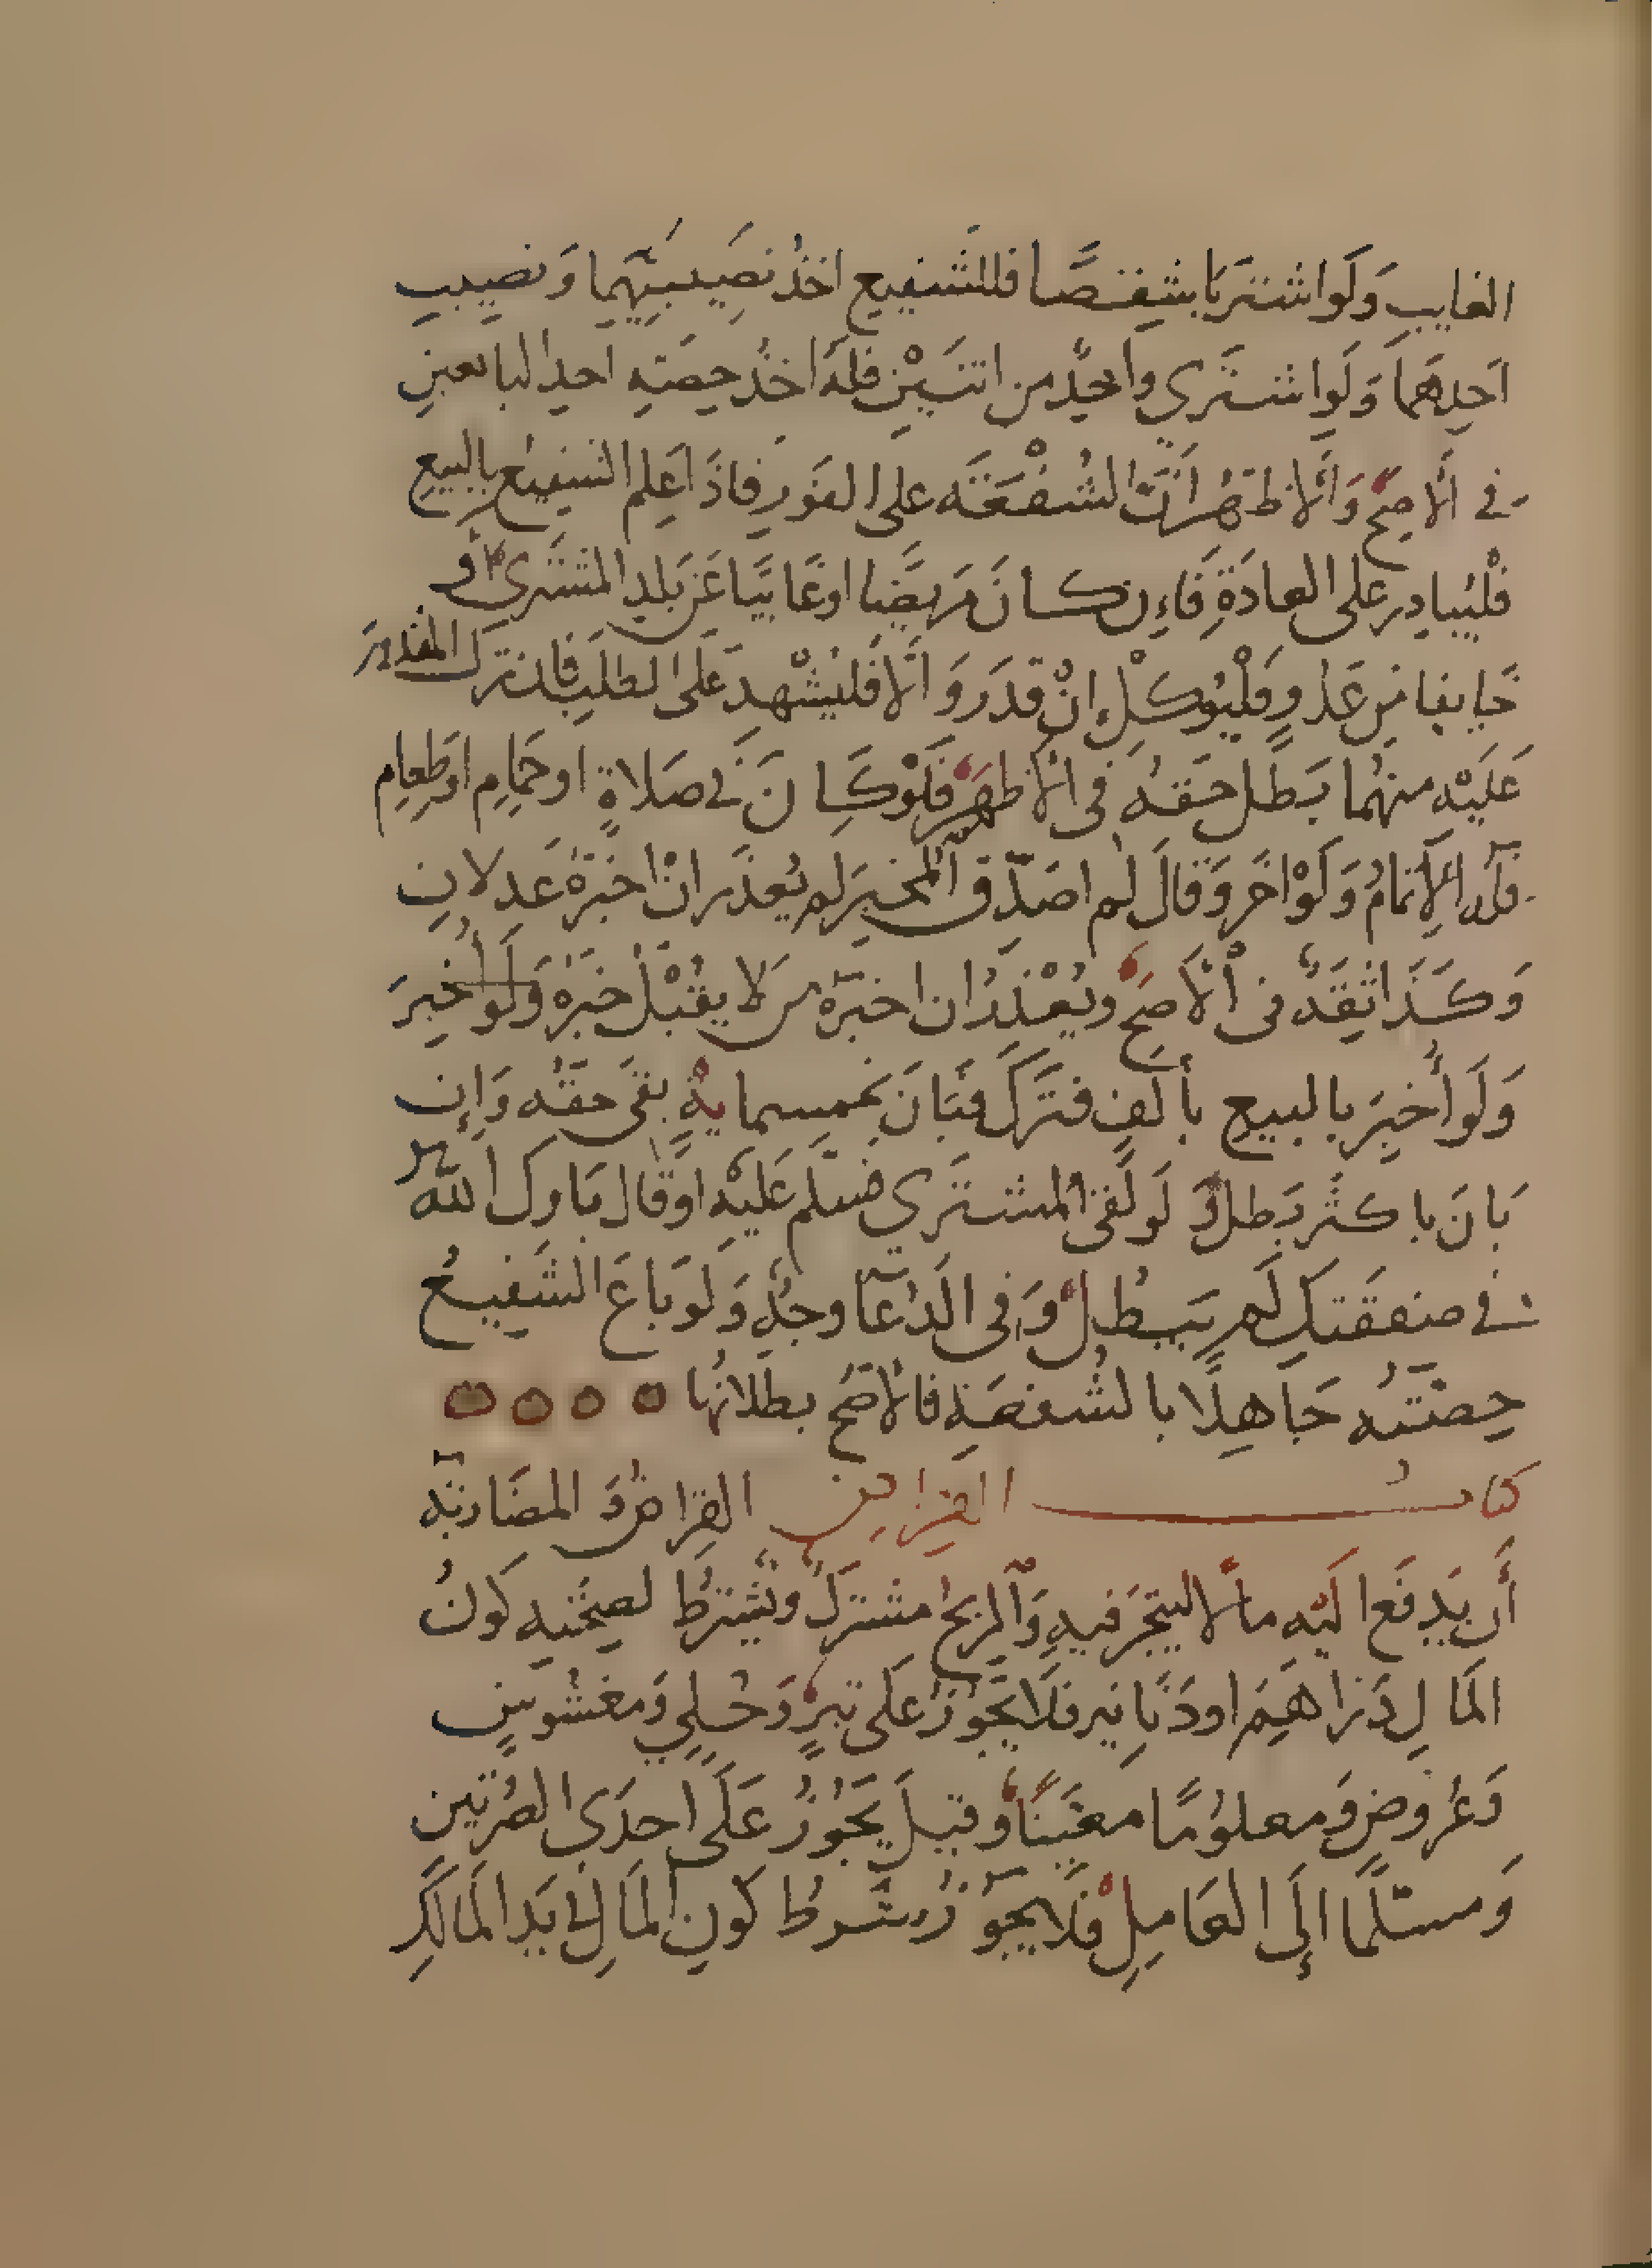 الغايب وَلَو اشتَرَيَا شِقْصًا فللشَّفيع اخذُ نَصِيبَيْهِمَا وَنصيبِ
اَحدِهمَا وَلَوِ اشتَرَى واحدٌ من اثنَيْنِ فلهُ اخذُ حِصّتِهِ احدِ البايعينِ
فى الاصحِّ وَالاظهَرُ اَنَّ الشُفْعَةَ على الفَورِ فاذَا عَلِمَ الشفيعُ بالبيعِ
فلْيُبادِر على العادَةِ فَاِن كانَ مَرِيضًا او غَايبًا عَن بَلدِ المشتَرِى أو
خَايفا مِن عَدُوٍ فَلْيُوكّلِ انْ قدَر وَالّا فَليُشْهِد عَلَى الطلبِ فان ترك المقدورَ
عَلَيْهِ منهُما بَطَل حَقهُ فى الاظهَرِ فَلَوْ كَانَ فى صَلاةٍ او حَمامٍ او طَعامٍ
فلهُ الاِتمامُ وَلَوْ اخّر وَقالَ لم اصَدّقِ المخبرَ لم يُعذَر ان اخبرَهُ عَدلانِ
وَكَذَا ثقَةٌ فى الاَصحِّ ويُعْذَرُ ان اخبَرَهُ من لا يقْبَلُ خبرُه وَلَو أُخبِرَ
وَلَو أُخبِرَ بالبيعِ بأَلفٍ فتَرَكَ فبَانَ بخمسمايةٍ بقىَ حقّهُ وَإن
بَانَ باكثرَ بَطل وَ لَو لَقِىَ المشتَرِى فسلّم عَليْهِ او قال بَارك الله
فى صفقَتكَ لَم يَبْطُلْ وَفى الدُعَا وجهٌ وَلَو بَاعَ الشَفِيعُ
حِصّتَهُ جَاهِلًا بالشُفعَةِ فالاصَحُّ بطلانُها
كتاب القراض القِراضُ وَ المضَاربَة
أَن يَدفَعَ اليْهِ مالًا ليتجرَ فيهِ وَالربحُ مشترَكٌ ويُشترَطُ لصِحّتِهِ كَونُ
المَالِ دَرَاهِمَ او دَنَانِيرَ فلَا يَجُوزُ عَلَى تبرٍ وَحُلِيٍّ وَمغشُوشٍ
وَعُروضٍ وَمعلوُمًا معَيّنًا وَقيلَ يَجُوزُ عَلَى احدَى الصُرّتينِ
وَمسلّمًا اِلَى العَامِلِ فلَا يجُوزُ شَرطُ كَونِ المَالِ فى يَدِ المَالكِ